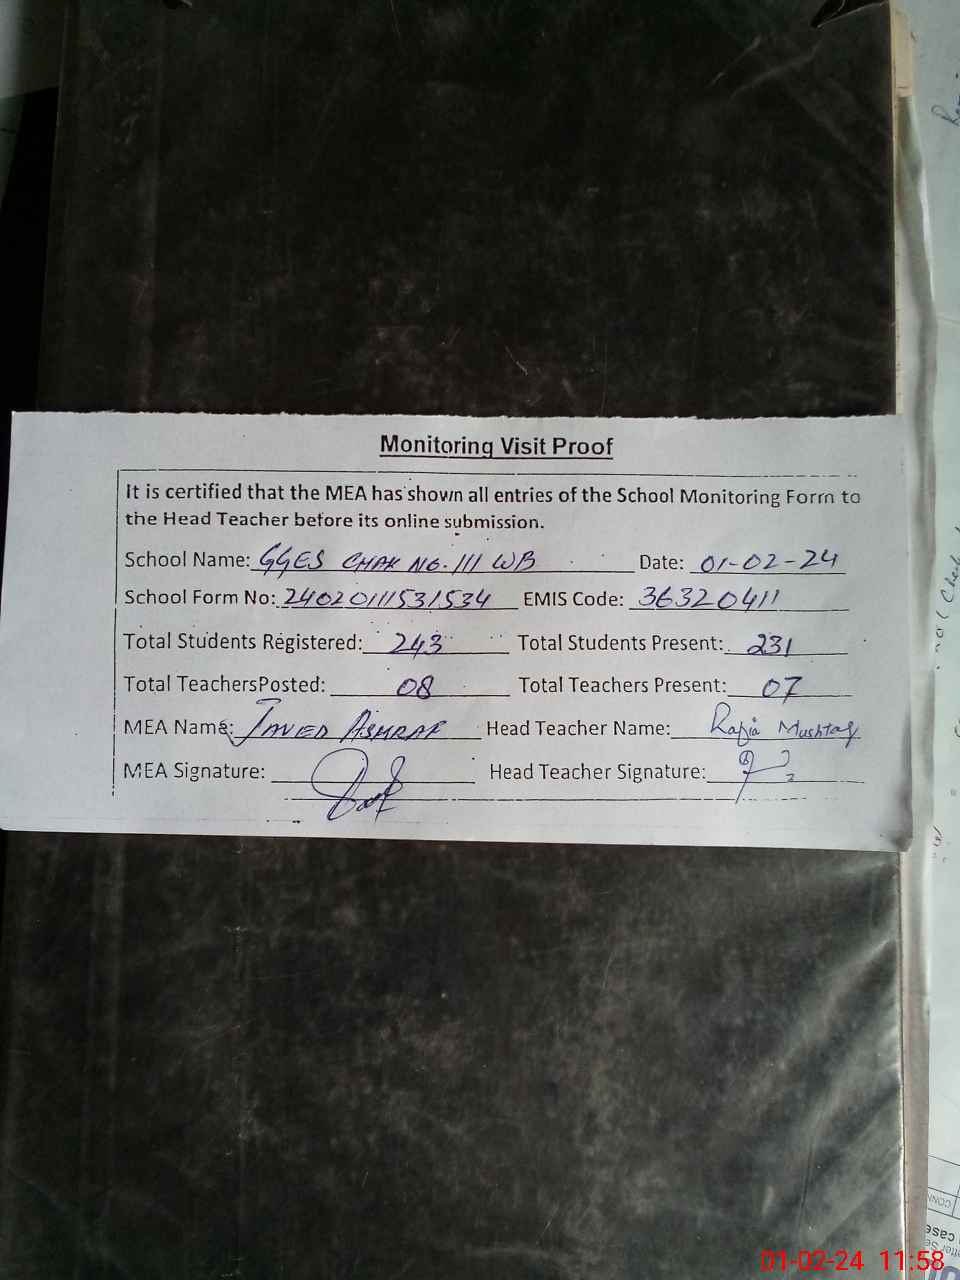 Monitoring Visit Proof
It is certified that the MEA has shown all entries of the School Monitoring Form to
the Head Teacher before its online submission.
School Name: GGES CHAK NO. 111 WB Date: 01-02-24
School Form No: 24020111531534 EMIS Code: 36320411
Total Students Registered: 243 Total Students Present: 231
Total TeachersPosted: 08 Total Teachers Present: 07
MEA Name: JAVED ASHRAF Head Teacher Name: Razia Mushtaq
MEA Signature: Head Teacher Signature:
01-02-24 11:58